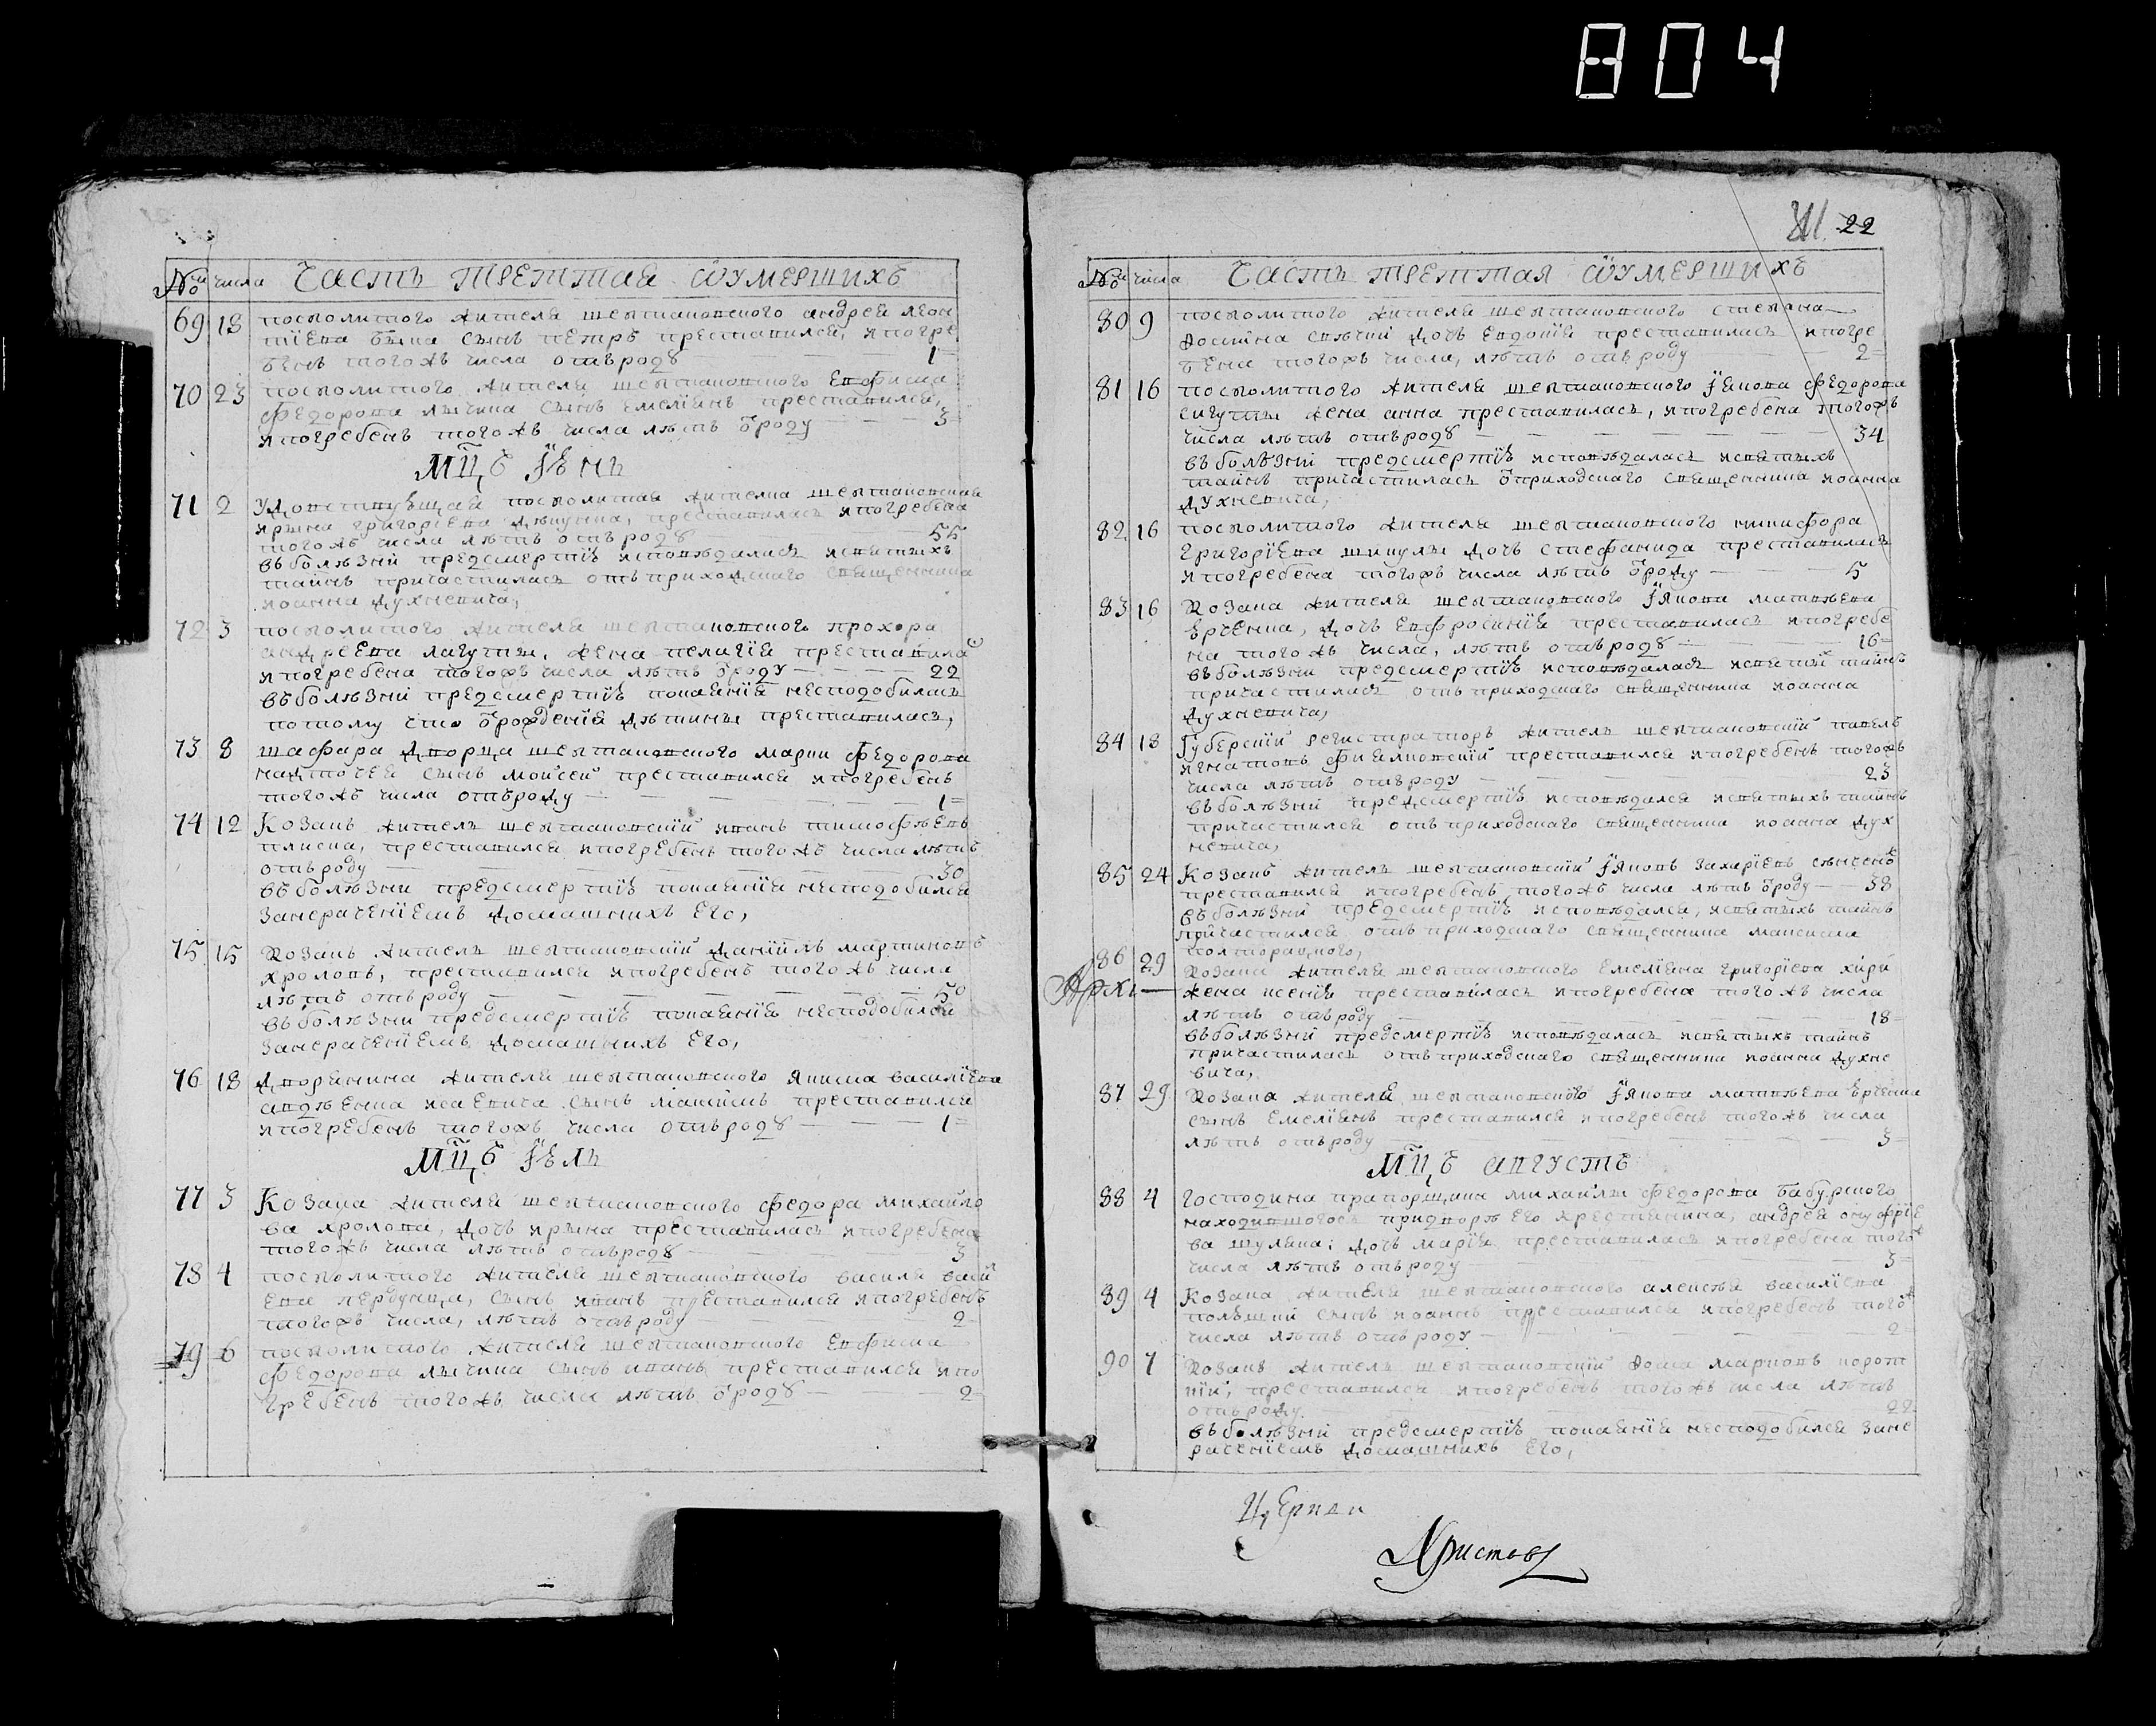 804
№ числа Часть треттая ѿ умершихъ
69 18 посполитого жителя шептаковского андрея леон
тіева быка сынъ петръ преставился, и погре
бенъ тогожъ числа отъ роду 1
70 23 посполитого жителя шептаковского Евфима
федорова лычина сынъ Емеліянъ преставился,
и погребенъ тогожъ числа лѣтъ ѿ роду 3
мцъ іюнь
71 2 посполитая жителка шептаковская
ирына григоріева преставилась и погребена
тогожъ числа лѣтъ отъ роду 55
въ болѣзни предсмертіѣ исповѣдалась и святыхъ
тайнъ причастилась отъ приходскаго священника
иоанна духневича,
72 3 посполитого жителя шептаковского прохора
андреева лагуты, жена пелагія преставилас
и погребена тогожъ числа лѣтъ ѿ роду 22
въ болѣзни предсмертіѣ покаянія несподобилась
потому что ѿ рожденія дѣтины преставилась,
73 8 шафара дворца шептаковского марки федорова
сынъ моисей преставился и погребенъ
тогожъ числа отъ роду 1
74 12 Козакъ житель шептаковскій иванъ тимофѣевъ
плиска, преставился и погребенъ тогожъ числа лѣтъ
отъ роду 30
въ болѣзни предсмертіѣ покаянія несподобился
занерачениемъ домашнихъ Его,
75 15 Козакъ житель шептаковскій даніилъ мартиновъ
хроловъ, преставился и погребенъ тогожъ числа
лѣтъ отъ роду 50
въ болѣзни предсмертіѣ покаянія несподобился
занерачениемъ домашнихъ Его,
76 18 дворянина жителя шептаковского якима василіева
исаевича сынъ максимъ преставился
и погребенъ тогожъ числа отъ роду 1
мцъ іюль
77 3 Козака жителя шептаковского федора михайло
ва хролова, дочь ирына преставилась и погребена
тогожъ числа лѣтъ отъ роду 3
78 4 посполитого жителя шептаковского василя васил
ева сынъ иванъ преставился и погребенъ
тогожъ числа, лѣтъ отъ роду 2
79 6 посполитого жителя шептаковского Евфима
федорова лычина сынъ иванъ преставился и по
гребенъ тогожъ числа лѣтъ ѿ роду 2
22
№ числа Часть треттая ѿ умершихъ
80 9 посполитого жителя шептаковского степана
дочь Евдокія преставилась и погре
бена тогожъ числа, лѣтъ отъ роду 2
81 16 посполитого жителя шептаковского іякова федорова
сигуты жена анна преставилась, и погребена тогожъ
числа лѣтъ отъ роду 34
въ болѣзни предсмертіѣ исповѣдалась и святыхъ
тайнъ причастилась ѿ приходскаго священника иоанна
духневича,
82 16 посполитого жителя шептаковского никифора
григоріева шикулы дочь стефанида преставилась
и погребена тогожъ числа лѣтъ ѿ роду 5
83 16 Козака жителя шептаковского іякова матвѣева
юрченка, дочь Евфросинія преставилась и погребе
на тогожъ числа, лѣтъ отъ роду 16
въ болѣзни предсмертіѣ исповѣдалась и святыхъ тайнъ
причастилась отъ приходскаго священника иоанна
духневича,
84 18 Губерскій регистраторъ житель шептаковскій павелъ
игнатовъ преставился и погребенъ тогожъ
числа лѣтъ отъ роду 23
въ болѣзни предсмертіѣ исповѣдался и святыхъ тайнъ
причастился отъ приходскаго священника иоанна дух
невича,
85 24 Козакъ житель шептаковскій іяковъ захаріевъ
преставился и погребенъ тогожъ числа лѣтъ ѿ роду 38
въ болѣзни предсмертіѣ исповѣдался, и святыхъ тайнъ
причастился отъ приходскаго священника максима
полторацкого,
86 29 Козака жителя шептаковского Емеліяна григоріева
жена ксенія преставилась и погребена тогожъ числа
лѣтъ отъ роду 18
въ болѣзни предсмертіѣ исповѣдалась и святыхъ тайнъ
причастилась отъ приходскаго священника иоанна духне
вича,
87 29 Козака жителя шептаковского іякова матвѣева юрченка
сынъ Емеліянъ преставился и погребенъ тогожъ числа
лѣтъ отъ роду 3
мцъ августъ
88 4 господина прапорщика михайлы федорова бабурского
находившогось придворѣ его крестянина, андрея онуфріе
ва шуляка: дочь марія преставилась и погребена тогож
числа лѣтъ отъ роду 3
89 4 Козака жителя шептаковского алексѣя василіева
сынъ иоаннъ преставился и погребенъ тогож
числа лѣтъ отъ роду 2
90 7 Козакъ житель шептаковскій фома марковъ корот
кій, преставился и погребенъ тогожъ числа лѣтъ
отъ роду 22
въ болѣзни предсмертіѣ покаянія несподобился зане
рачениемъ домашнихъ Его,
Церкви
Христов